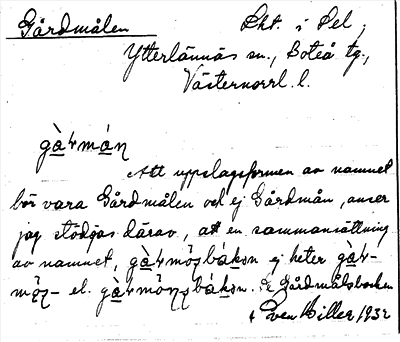 Gårdmålen Pkt. i Sel,
Ytterlännäs sn., Boteå tg.,
Västernorrl. l.
gàṛmáṇ
Att uppslagsformen av namnet
bör vara Gårdmålen och ej Gårdmån, anser
jag stödjas därav, att en sammansättning
av namnet, ej heter
el. Gårdmålsbacken
Sven Hiller 1932